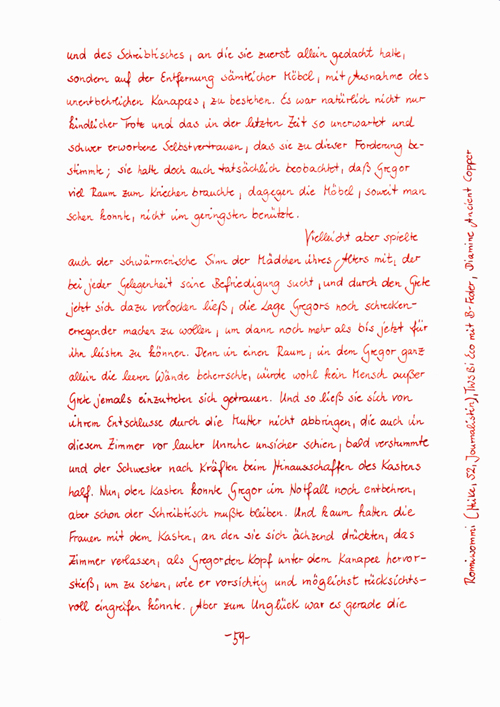 und des Schreibtisches, an die sie zuerst allein gedacht hatte,
sondern auf der Entfernung sämtlicher Möbel, mit Ausnahme des
unentbehrlichen Kanapees, zu bestehen. Es war natürlich nicht nur
kindlicher Trotz und das in der letzten Zeit so unerwartet und
schwer erworbene Selbstvertrauen, das sie zu dieser Forderung be-
stimmte; sie hatte doch auch tatsächlich beobachtet, daß Gregor
viel Raum zum Kriechen brauchte, dagegen die Möbel, soweit man
sehen konnte, nicht im geringsten benützte.
Vielleicht aber spielte
auch der schwärmerische Sinn der Mädchen ihres Alters mit, der
bei jeder Gelegenheit seine Befriedigung sucht, und durch den Grete
jetzt sich dazu verlocken ließ, die Lage Gregors noch schrecken-
erregender machen zu wollen, um dann noch mehr als bis jetzt für
ihn leisten zu können. Denn in einen Raum, in dem Gregor ganz
allein die leeren Wände beherrschte, würde wohl kein Mensch außer
Grete jemals einzutreten sich getrauen. Und so ließ sie sich von
ihrem Entschlusse durch die Mutter nicht abbringen, die auch in
diesem Zimmer vor lauter Unruhe unsicher schien, bald verstummte
und der Schwester nach Kräften beim Hinausschaffen des Kastens
half. Nun, den Kasten konnte Gregor im Notfall noch entbehren,
aber schon der Schreibtisch mußte bleiben. Und kaum hatten die
Frauen mit dem Kasten, an den sie sich ächzend drückten, das
Zimmer verlassen, als Gregor den Kopf unter dem Kanapee hervor-
stieß, um zu sehen, wie er vorsichtig und möglichst rücksichts-
voll eingreifen könnte. Aber zum Unglück war es gerade die
-59-
(Heike, 52, Journalistin), TWSBI Eco mit B-Feder, Diamine Ancient Copper